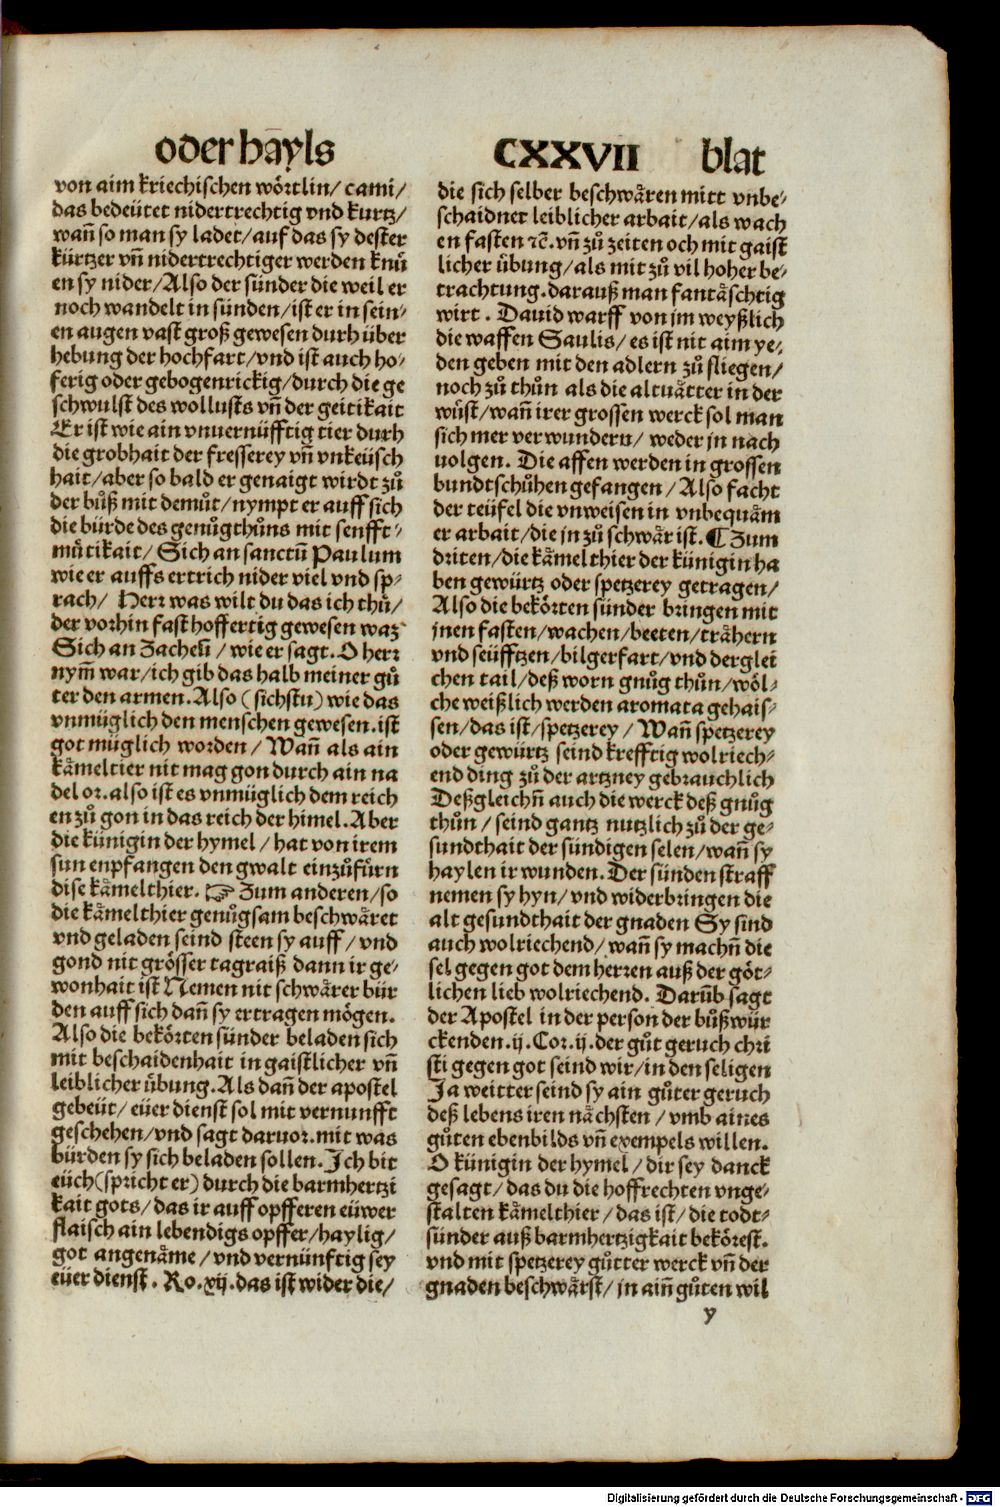 oder hayls CXXVII blat
von aim kriechischen wörtlin/ cami/
das bedeütet nidertrechtig vnd kurtz/
wañ so man sy ladet/auf das sy dester
kürtzer vñ nidertrechtiger werden knü
en sy nider/Also der sünder die weil er
noch wandelt in sünden/ist er in sein⸗
en augen vast groß gewesen durh über
hebung der hochfart/vnd ist auch ho⸗
ferig oder gebogenrickig/durch die ge
schwulst des wollusts vñ der geitikait
Er ist wie ain vnuernüfftig tier durh
die grobhait der fresserey vñ vnkeüsch
hait/aber so bald er genaigt wirdt zů
der bůß mit demůt/nympt er auff sich
die bürde des genůgthůns mit senfft⸗
mütikait/ Sich an sanctū Paulum
wie er auffs ertrich nider viel vnd sp⸗
rach/ Herr was wilt du das ich thů/
der vorhin fast hoffertig gewesen waz
Sich an Zacheū/ wie er sagt. O herr
nym̄ war/ich gib das halb meiner gů
ter den armen. Also (sichstu) wie das
vnmüglich den menschen gewesen. ist
got müglich worden/ Wañ als ain
kämeltier nit mag gon durch ain na
del or. also ist es vnmüglich dem reich
en zů gon in das reich der himel. Aber
die künigin der hymel/ hat von irem
sun enpfangen den gwalt einzůfürn
dise kämelthier. ☞ Zum anderen/so
die kämelthier genůgsam beschwäret
vnd geladen seind steen sy auff/ vnd
gond nit grösser tagraiß dann ir ge⸗
wonhait ist Nemen nit schwärer bür
den auff sich dañ sy ertragen mögen.
Also die bekörten sünder beladen sich
mit beschaidenhait in gaistlicher vñ
leiblicher übung. Als dañ der apostel
gebeüt/ eüer dienst sol mit vernunfft
geschehen/vnd sagt daruor. mit was
bürden sy sich beladen sollen. Ich bit
eüch(spricht er) durch die barmhertzi
kait gots/ das ir auff opfferen eüwer
flaisch ain lebendigs opffer/haylig/
got angenäme/vnd vernünftig sey
eüer dienst. Ro. xij. das ist wider die/
die sich selber beschwären mitt vnbe⸗
schaidner leiblicher arbait/als wach
en fasten ꝛc̄. vñ zů zeiten och mit gaist
licher übung/als mit zů vil hoher be⸗
trachtung. darauß man fantäschtig
wirt. Dauid warff von jm weyßlich
die waffen Saulis/ es ist nit aim ye⸗
den geben mit den adlern zů fliegen/
noch zů thůn als die altuätter in der
wüst/wañ irer grossen werck sol man
sich mer verwundern/ weder jn nach
uolgen. Die affen werden in grossen
bundtschůhen gefangen/ Also facht
der teüfel die vnweisen in vnbequäm
er arbait/die jn zů schwär ist. ¶ Zum
driten/die kämelthier der künigin ha
ben gewürtz oder spetzerey getragen/
Also die bekörten sünder bringen mit
jnen fasten/wachen/beeten/trähern
vnd seüfftzen/bilgerfart/vnd derglei
chen tail/deß worn gnůg thůn/wöl⸗
che weißlich werden aromata gehais⸗
sen/das ist/spetzerey/ Wañ spetzerey
oder gewürtz seind krefftig wolriech⸗
end ding zů der artzney gebrauchlich
Deßgleichñ auch die werck deß gnůg
thůn/ seind gantz nutzlich zů der ge⸗
sundthait der sündigen selen/wañ sy
haylen ir wunden. Der sünden straff
nemen sy hyn/vnd widerbringen die
alt gesundthait der gnaden Sy sind
auch wolriechend/ wañ sy machñ die
sel gegen got dem herren auß der göt⸗
lichen lieb wolriechend. Darūb sagt
der Apostel in der person der bůßwür
ckenden. ij. Cor. ij. der gůt geruch chri
sti gegen got seind wir/in den seligen
Ja weitter seind sy ain gůter geruch
deß lebens iren nächsten/ vmb aines
gůten ebenbilds vñ exempels willen.
O künigin der hymel/dir sey danck
gesagt/das du die hoffrechten vnge⸗
stalten kämelthier/das ist/die todt⸗
sünder auß barmhertzigkait bekörest.
vnd mit spetzerey gůtter werck vñ der
gnaden beschwärst/ jn aiñ gůten wil
y
Digitalisierung gefördert durch die Deutsche Forschungsgemeinschaft - DFG